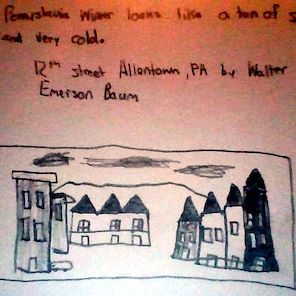 Winter looks like a ton of
and very cold.
12th street Allentown, PA by Walter
Emerson Baum